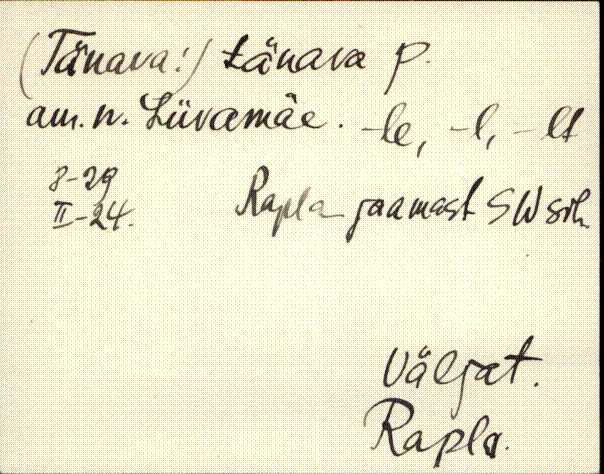 (Tänava:) tänava p.
am. n. Liivamäe. -le, -l, -lt
8-29
II-24.
Rapla jaamast SW sih.
Väljat.
Rapla.